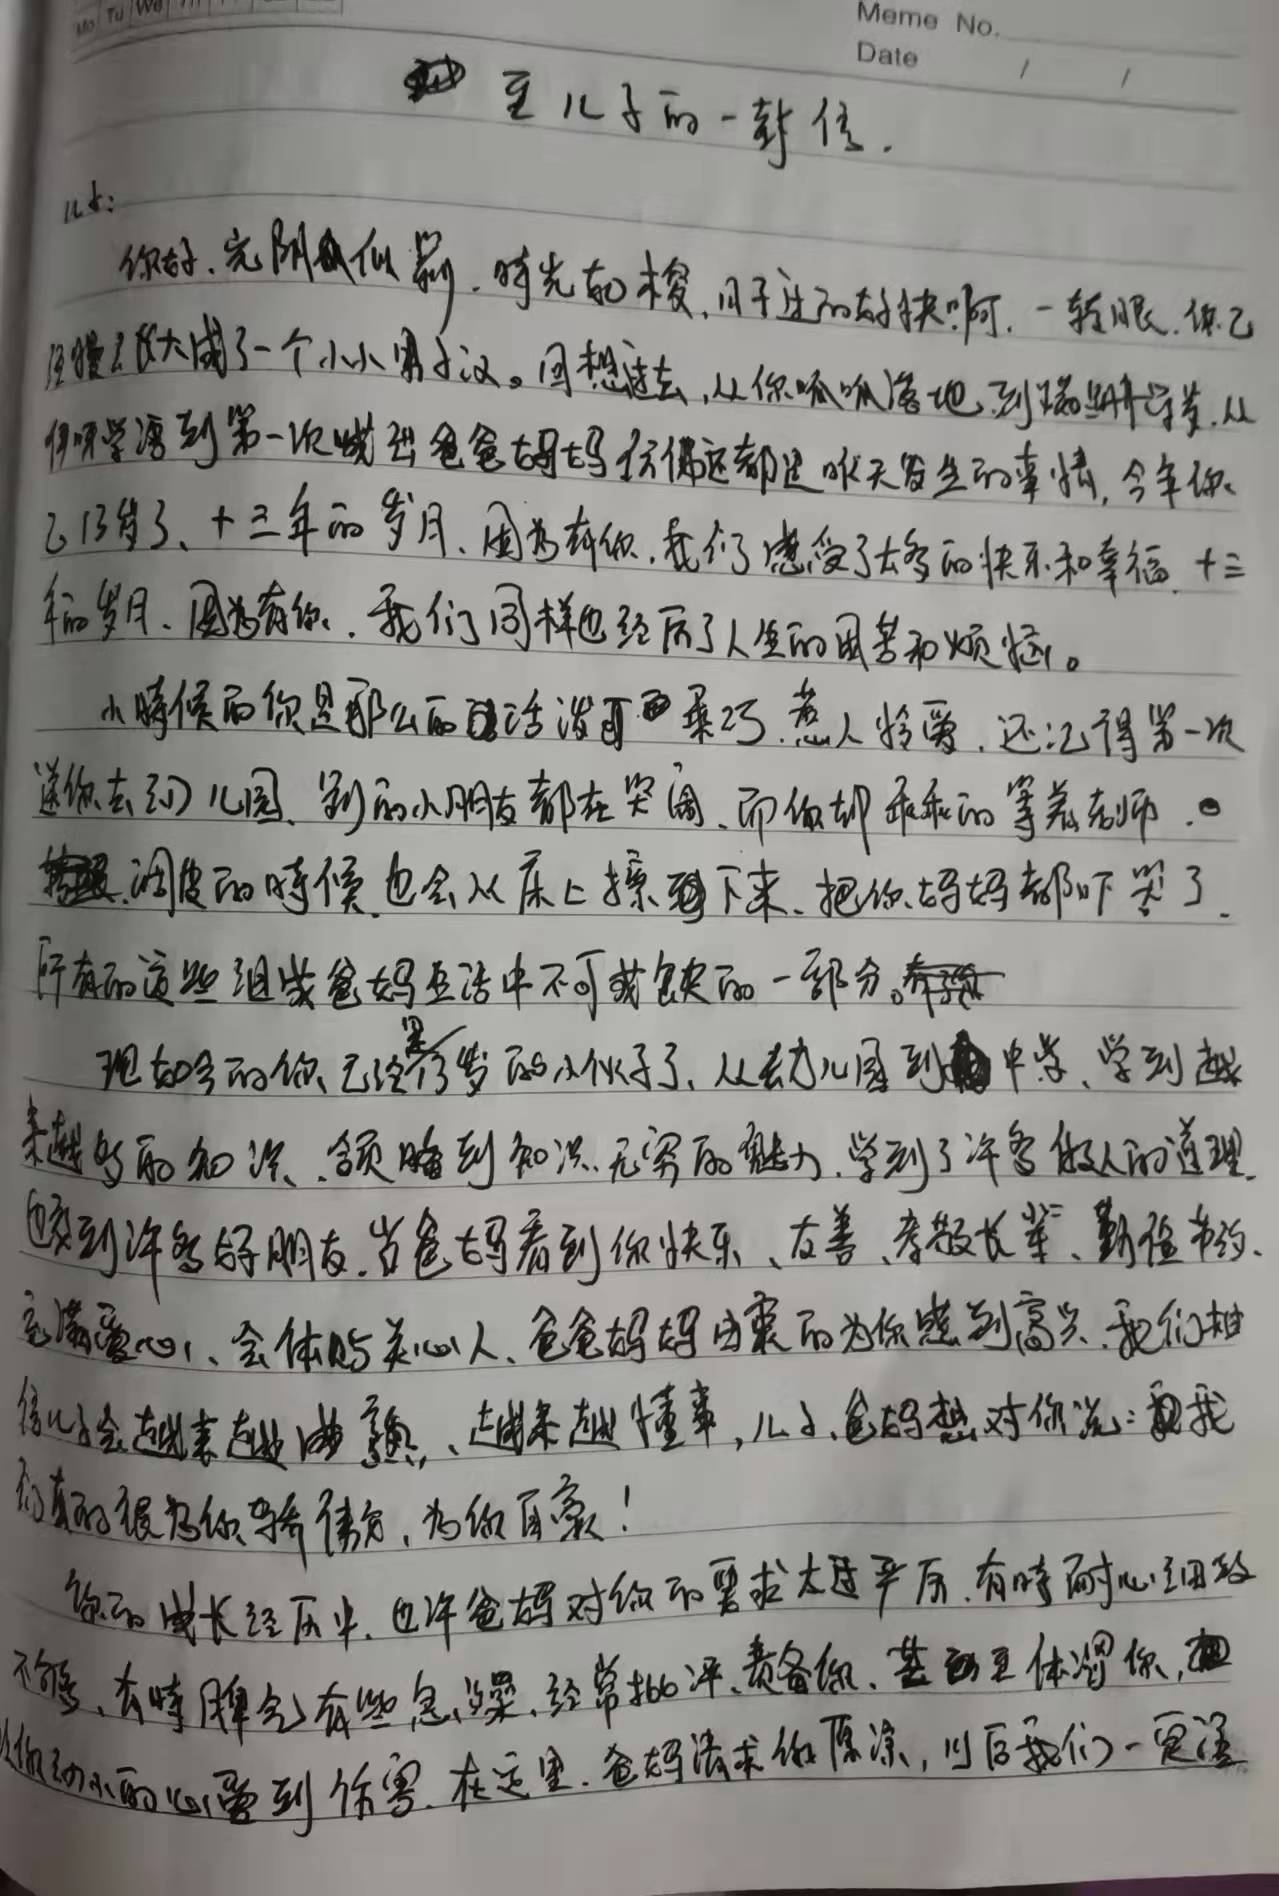 Mo Tu We
Meme No.
Date / /
至儿子的一封信.
儿子:
你好、光阴似箭、时光如梭,日子过的好快啊,一转眼,你已
经慢慢长大成了一个小小男子汉。回想过去,从你呱呱落地,到蹒跚学步,从
伊呀学语到第一次喊出爸爸妈妈仿佛这都是昨天发生的事情,今年你
已13岁了、十三年的岁月、因为有你,我们感受了太多的快乐和幸福,十三
年的岁月、因为有你,我们同样也经历了人生的困苦和烦恼。
小時候的你是那么的活泼可乖巧,惹人怜爱,还记得第一次
送你去幼儿园、别的小朋友都在哭闹,而你却乖乖的等着老师.
调皮的時候,也会从床上摔下来、把你妈妈都吓哭了.
所有的这些组成爸妈生活中不可或缺的一部分。
现如今的你、已经是13岁的小伙子了、从幼儿园到中学、学到越
来越多的知识、领略到知识无穷的魅力,学到了许多做人的道理,
也交到许多好朋友,当爸妈看到你快乐、友善、孝敬长辈、勤俭节约、
充满爱心、会体贴关心人、爸爸妈妈由衷的为你感到高兴,我们相
信儿子会越来越成熟、越来越懂事,儿子、爸妈想对你说:我
们真的很为你骄傲,为你自豪!
你的成长经历中,也许爸妈对你的要求太过严厉,有時耐心细致
不够、有時脾气有些急躁、经常批评、责备你、甚至体罚你,
让你幼小的心受到伤害.在这里,爸妈请求你原谅,以后我们一定注